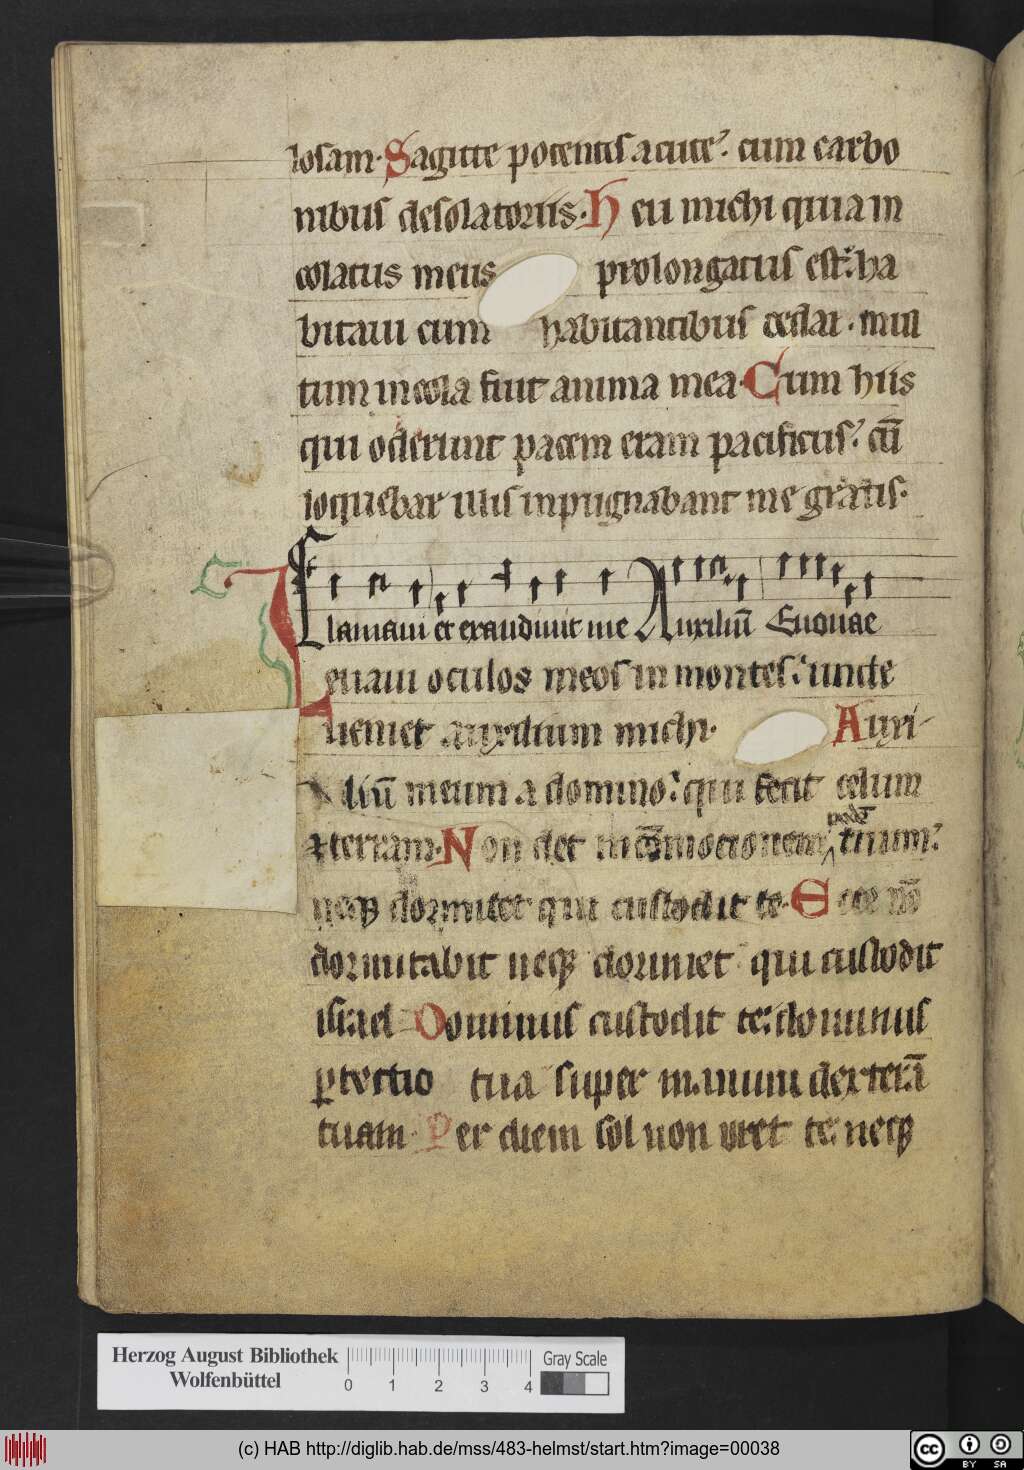 losam. Sagitte potentis acute. cum carbo
nibus desolatoriis. Heu michi quia in
colatus meus prolongatus est: ha
bitaui cum habitantibus cedar. mul
tum incola fuit anima mea. Cum hiis
qui oderunt pacem eram pacificus. cū
loquebar illis inpugnabant me gratis.
Clamaui et exaudiuit me Auxiliū Euouae
Leuaui oculos meos in montes: unde
ueniet auxilium michi. Auxi-
liū meum a domino: qui fecit celum
et terram. Non det in cōmotionem pedē tuum.
neqꝫ dormitet qui custodit te. Ecce nō
dormitabit neqꝫ dormiet qui custodit
israel Dominus custodit te: dominus
ꝑtectio tua super manum dexterā
tuam. Per diem sol non uret te: neqꝫ
Herzog August Bibliothek
Wolfenbüttel
0 1 2 3 4
Gray Scale
(c) HAB http://diglib.hab.de/mss/483-helmst/start.htm?image=00038
cc BY SA